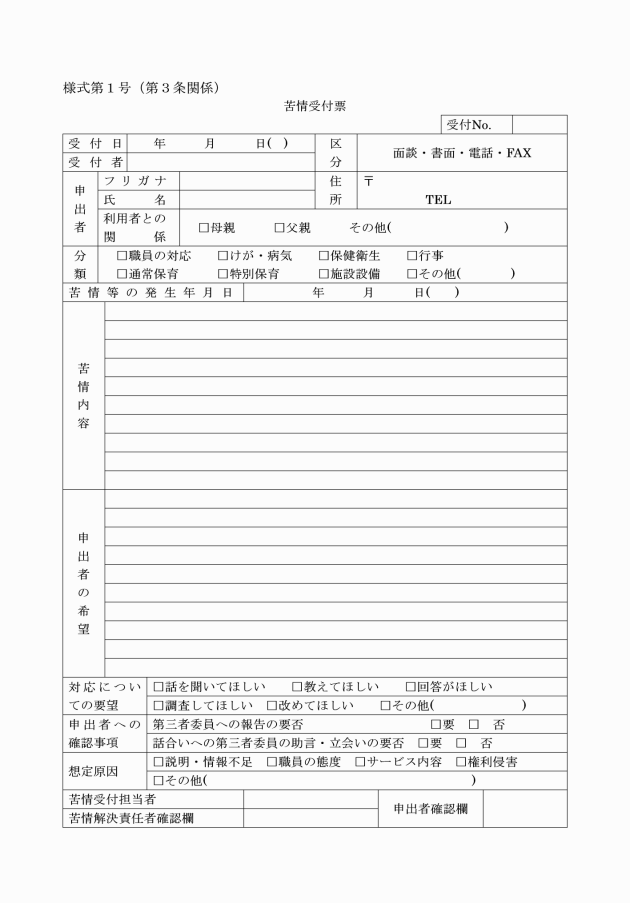 様式第１号（第３条関係）
苦情受付票
受付No.
受付日　年　月　日(　)　区分　面談・書面・電話・FAX
受付者
申出者　フリガナ　住所　〒
氏名　TEL
利用者との関係　□母親　□父親　その他(　)
分類　□職員の対応　□けが・病気　□保健衛生　□行事
□通常保育　□特別保育　□施設設備　□その他(　)
苦情等の発生年月日　年　月　日(　)
苦情内容
申出者の希望
対応についての要望　□話を聞いてほしい　□教えてほしい　□回答がほしい
□調査してほしい　□改めてほしい　□その他(　)
申出者への確認事項　第三者委員への報告の要否　□要　□　否
話合いへの第三者委員の助言・立会いの要否　□要　□　否
想定原因　□説明・情報不足　□職員の態度　□サービス内容　□権利侵害
□その他(　)
苦情受付担当者　申出者確認欄
苦情解決責任者確認欄